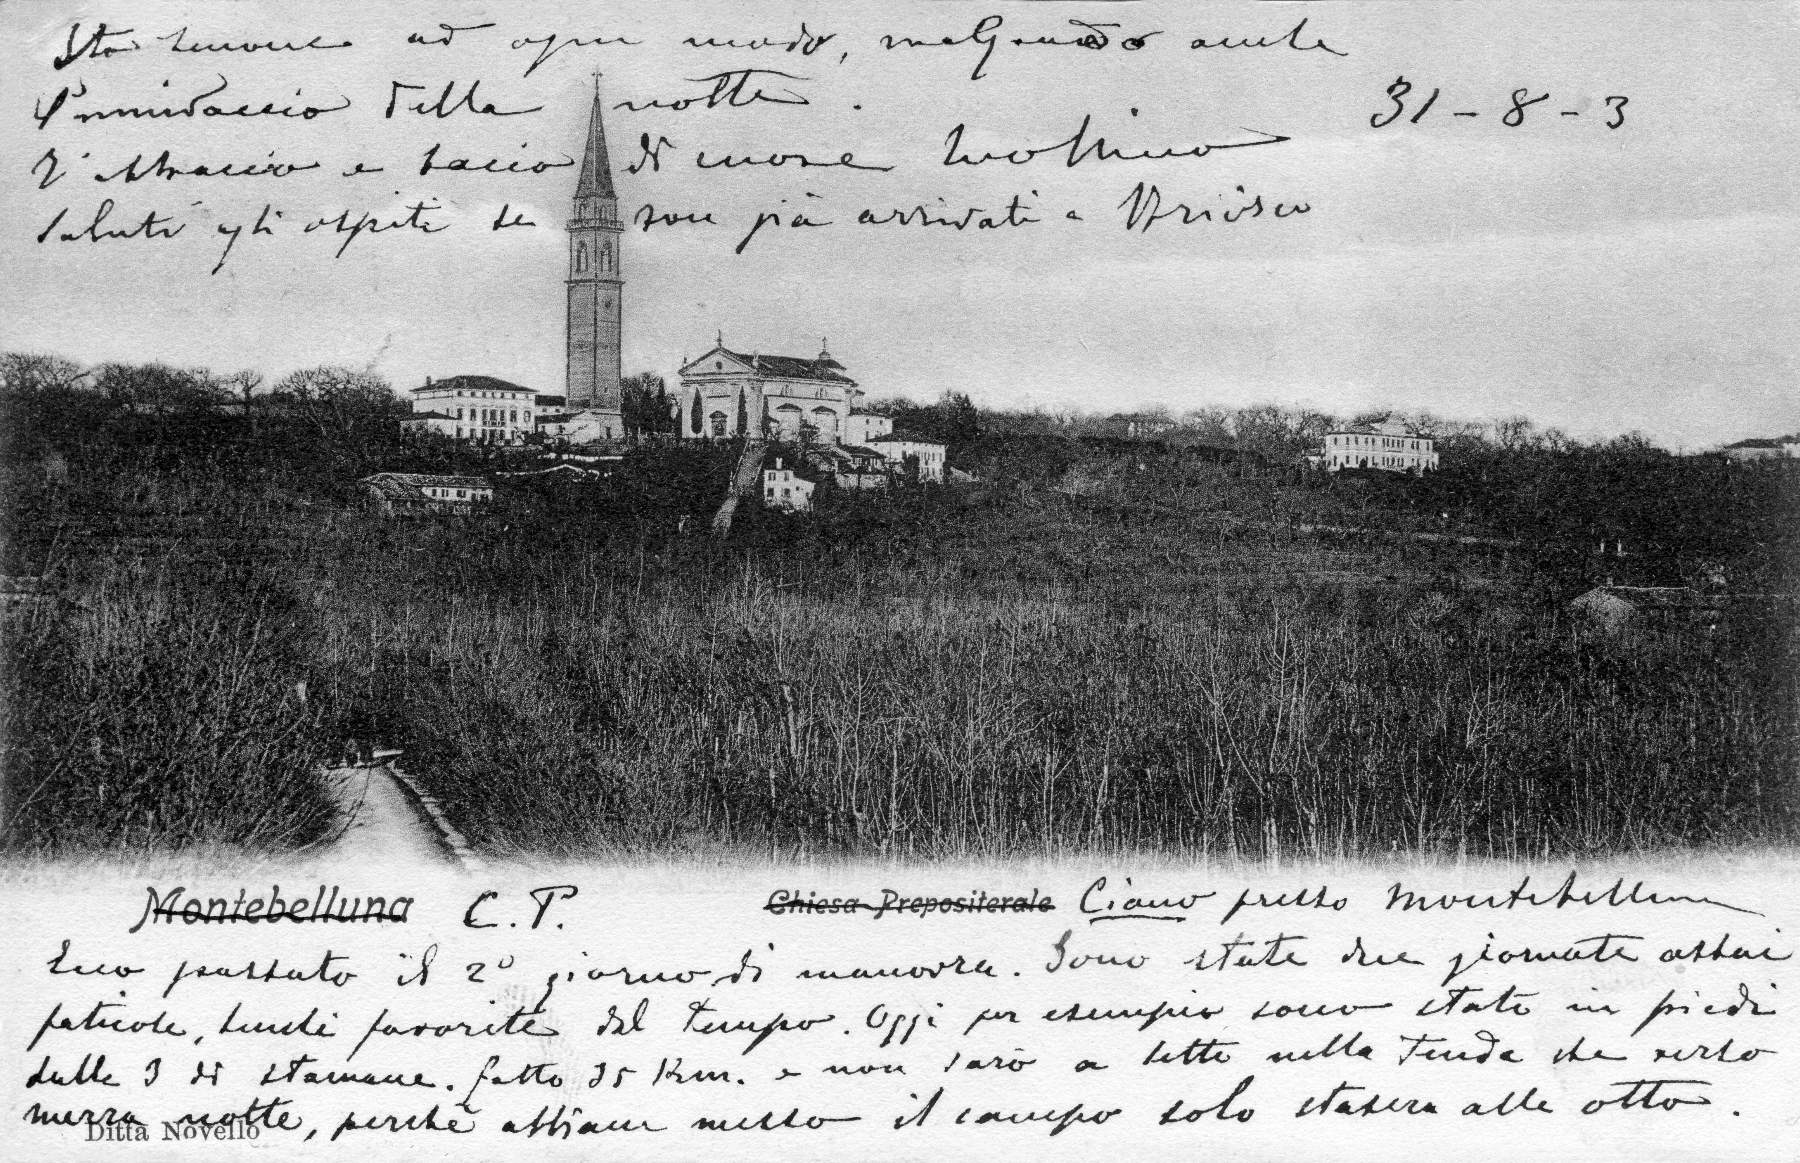 Sto benone ad ogni modo, malgrado anche
l'umidaccio della notte.
31-8-3
T'abbraccio e bacio di cuore
Saluti agli ospiti se son già arrivati a
Montebelluna C.P. Chiesa Prepositerale Ciano presso Montebelluna
Ecco passato il 2º giorno di manovra. Sono state due giornate assai
faticose, benchè favorite dal tempo. Oggi per esempio sono stato in piedi
dalle 3 di stamane. fatto 35 Km. e non sarò a letto nella tenda che verso
mezza notte, perchè abbiam messo il campo solo stasera alle otto.
Ditta Novello